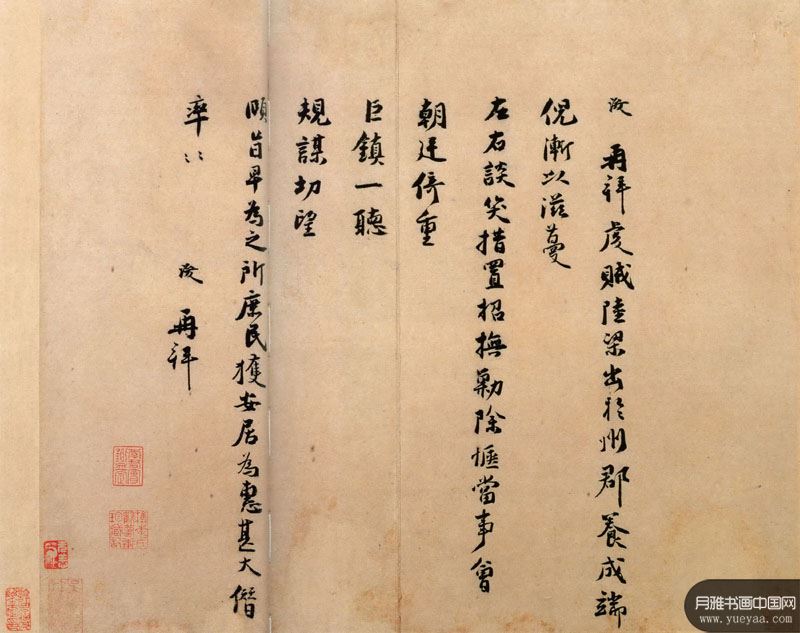 浚 再拜虔賊陸梁出於州郡養成端
倪漸以滋蔓
左右談笑措置招撫勦除愜當事會
朝廷倚重
巨鎮一聽
規謀切望
頤旨早為之所庶民獲安居為惠甚大僭
率〻 浚 再拜
月雅书画中国网
www.yueyaa.com